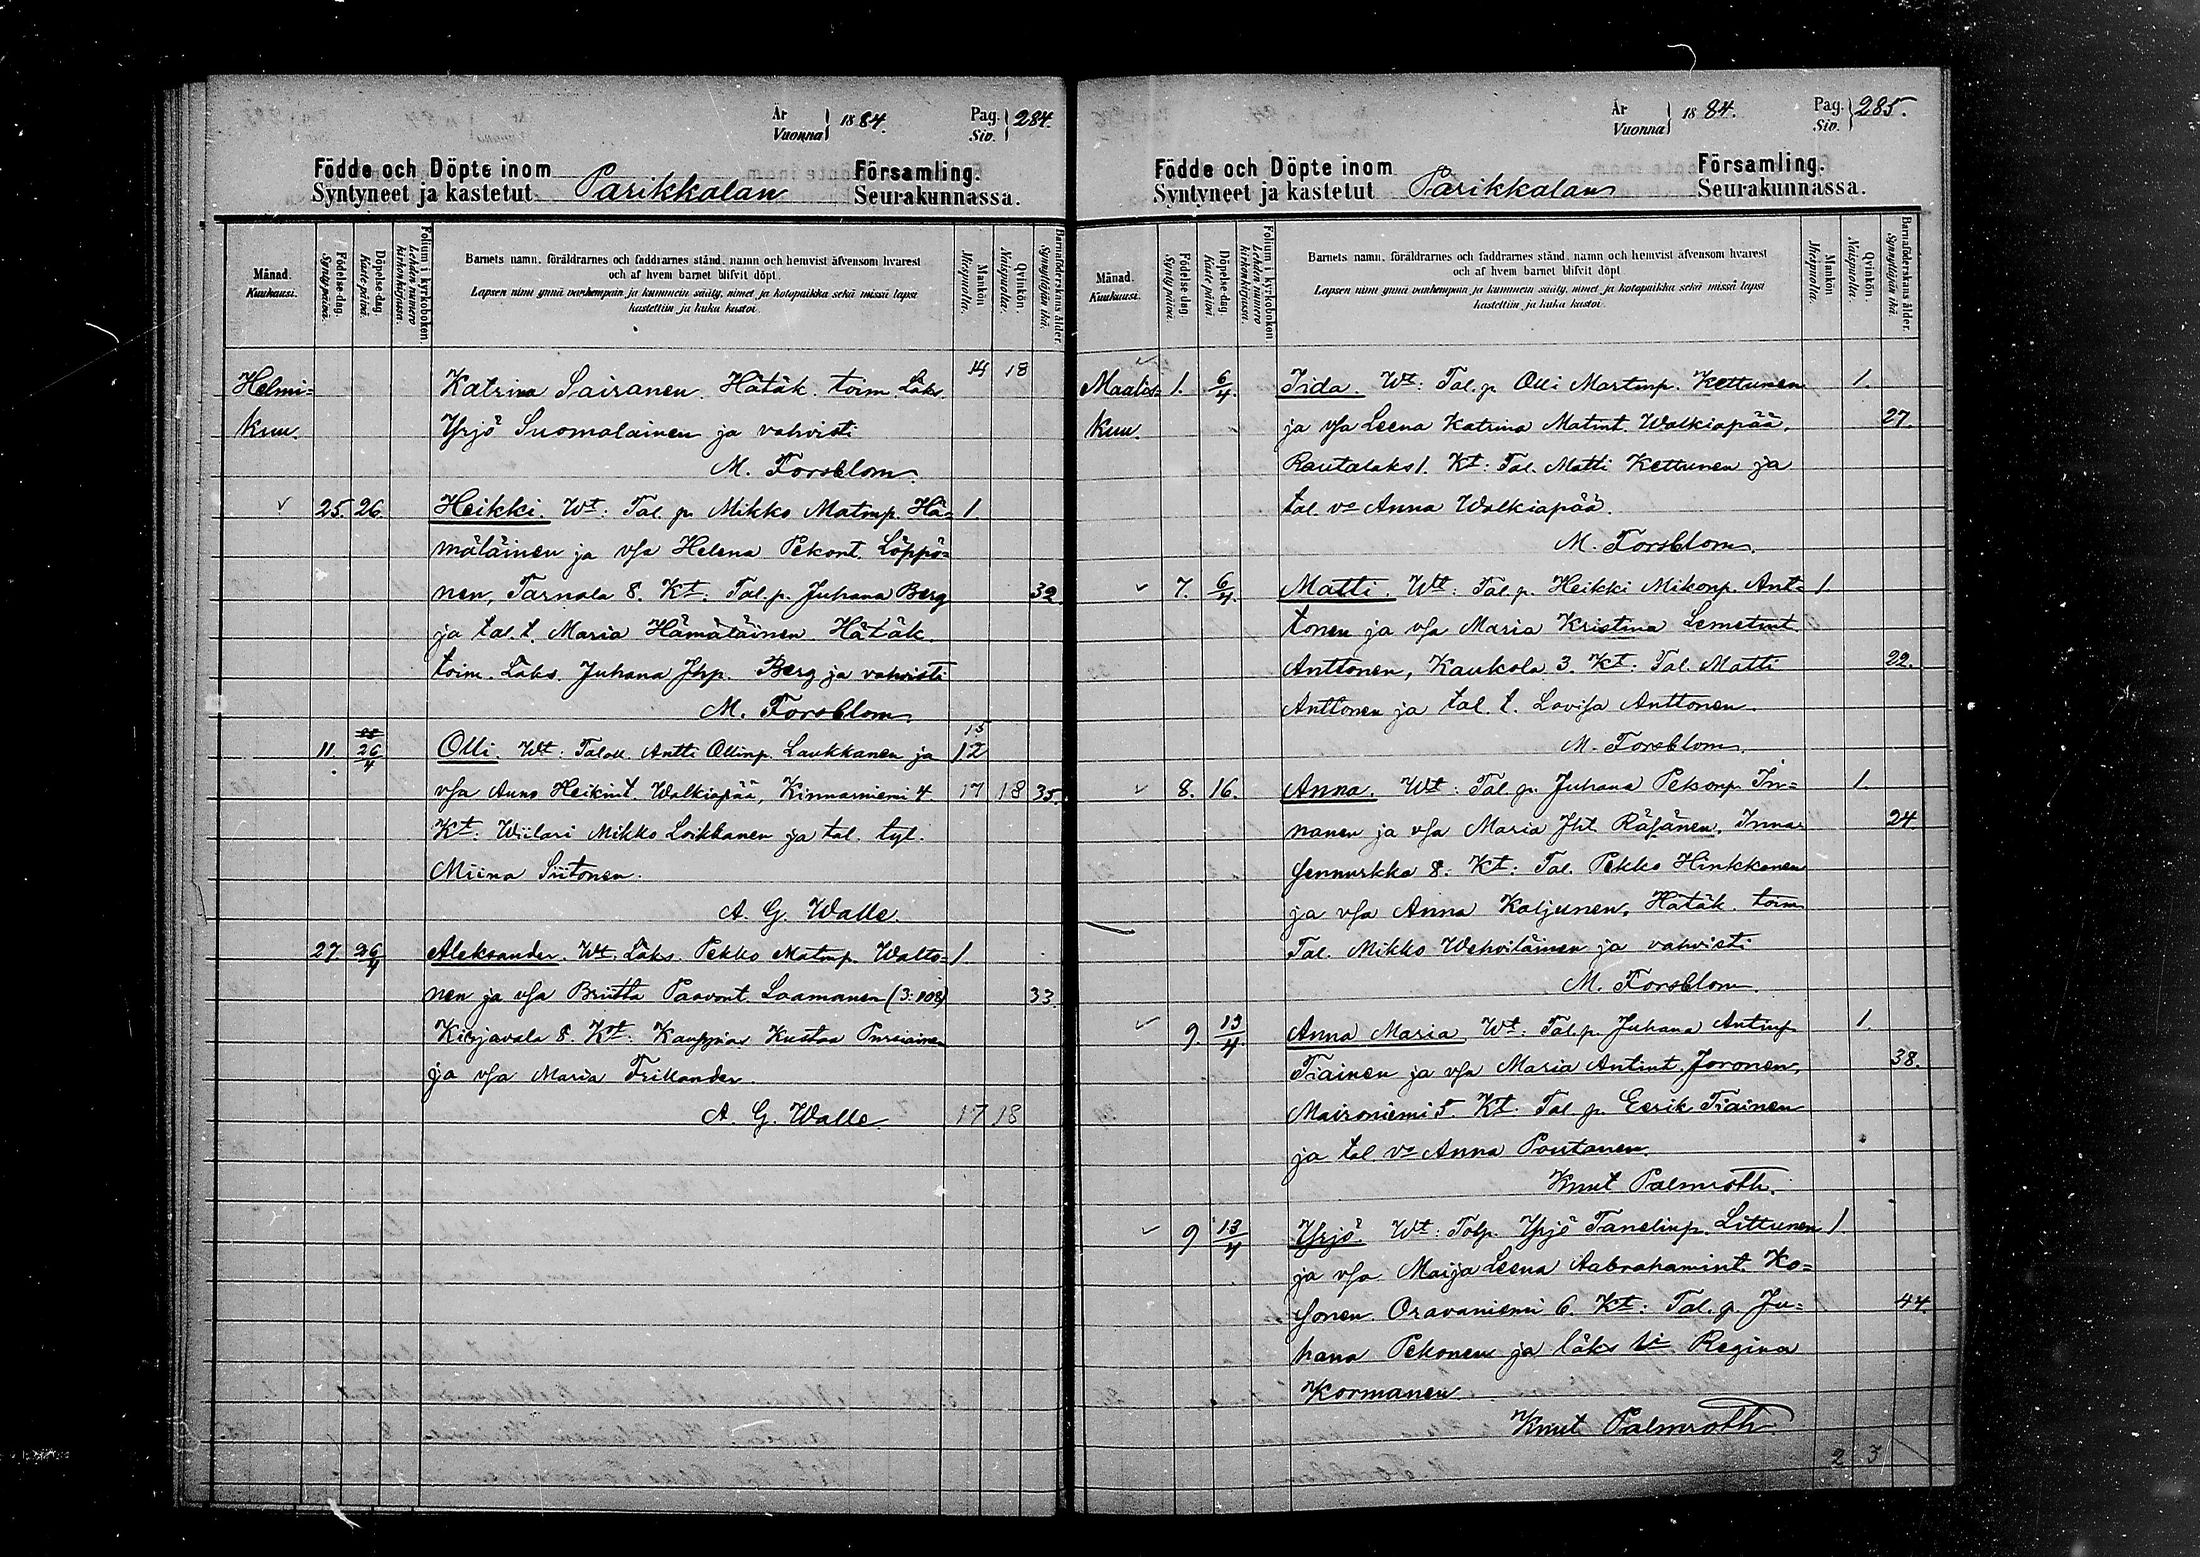 År Vuonna 1884. Pag. Siv. 284.
Födde och Döpte inom Församling.
Syntyneet ja kastetut Parikkalan Seurakunnassa.
Månad. Kuukausi.
Födelse-dag. Synty päivä.
Döpelse-dag. Kaste päivä.
Folium i kyrkoboken. Lehden numero kirkonkirjassa.
Barnets namn, föräldrarnes och faddrarnes stånd, namn och hemvist äfvensom hvarest
och af hvem barnet blifvit döpt.
Lapsen nimi ynnä vanhempain ja kummein sääty, nimet ja kotopaikka sekä missä lapsi
kastettiin ja kuka kastoi.
Mankön Miespuolta.
Qvinkön. Naispuolta.
Barnaföderskans ålder. Synnyttäjän ikä.
18
Helmi= Katrina Sairanen. Hätäk. toim. Läks.
kuu. Yrjö Suomalainen ja vahvisti
M. Forsblom.
25. 26. Heikki. Wt: Tal. p. Mikko Matinp. Hä= 1.
mäläinen ja vsa Helena Pekont. Löppö=
nen, Tarnala 8. Kt: Tal. p. Juhana Berg 32.
ja tal. t. Maria Hämäläinen. Hätäk.
toim. Läks. Juhana Jhp. Berg ja vahvisti
M. Forsblom
15
11. 26/4 Olli. Wt: Talol. Antti Ollinp. Laukkanen ja 12
vsa Anna Heikint. Walkiapää, Kinnarniemi 4. 17 18 35.
Kt: Wiilari Mikko Loikkanen ja tal. tyt.
Miina Siitonen.
A. G. Walle.
27. 26/4 Aleksander. Wt. Läks. Pekko Matinp. Walto= 1.
nen ja vsa Briitta Paavont. Laamanen (3:108) 33.
Kirjavala 8. Kt: Kauppias Kustaa Pursiainen
ja vsa Maria Frilander.
A. G. Walle. 17 18
År Vuonna 1884. Pag. Siv. 285.
Födde och Döpte inom Församling.
Syntyneet ja kastetut Parikkalan Seurakunnassa.
Månad. Kuukausi.
Födelse-dag. Synty päivä.
Döpelse-dag. Kaste päivä.
Folium i kyrkoboken Lehden numero kirkonkirjassa.
Barnets namn, föräldrarnes och faddrarnes stånd, namn och hemvist äfvensom hvarest
och af hvem barnet blifvit döpt.
Lapsen nimi ynnä vanhempain ja kummein sääty, nimet ja kotopaikka sekä missä lapsi
kastettiin ja kuka kastoi.
Mankön Miespuolta.
Qvinkön. Naispuolta.
Barnaföderskans ålder. Synnyttäjän ikä.
Maalis= 1. 6/4. Iida. Wt: Tal. p. Olli Martinp. Kettunen 1.
kuu. ja vsa Leena Katrina Matint. Walkiapää, 27.
Rautalaks 1. Kt: Tal. Matti Kettunen ja
tal. vo Anna Walkiapää.
M. Forsblom.
7. 6/4. Matti. Wt: Tal. p. Heikki Mikonp. Ant= 1.
tonen ja vsa Maria Kristina Lemetint.
Anttonen, Kaukola 3. Kt: Tal. Matti 22.
Anttonen ja tal. t. Lovisa Anttonen.
M. Forsblom.
8. 16. Anna. Wt: Tal. p. Juhana Pekonp. In= 1.
nanen ja vsa Maria Jht. Räsänen, Inna= 24
sennurkka 8. Kt: Tal. Pekko Hinkkanen
ja vsa Anna Kaljunen. Hätäk. toim
Tal. Mikko Wehviläinen ja vahvisti
M. Forsblom.
9. 13/4. Anna Maria. Wt: Tal. p. Juhana Antinp. 1.
Tiainen ja vsa Maria Antint. Joronen, 38.
Maironiemi 5. Kt. Tal. p. Eerik Tiainen
ja tal. vo Anna Poutanen.
Knut Palmroth.
9 13/4 Yrjö. Wt: Talp. Yrjö Tanelinp. Littunen 1.
ja vsa Maija Leena Aabrahamint. Ko=
sonen. Oravaniemi 6. Kt: Tal. p. Ju= 44.
hana Pekonen ja läks. Regina
Kormanen.
Knut Palmroth.
2 3